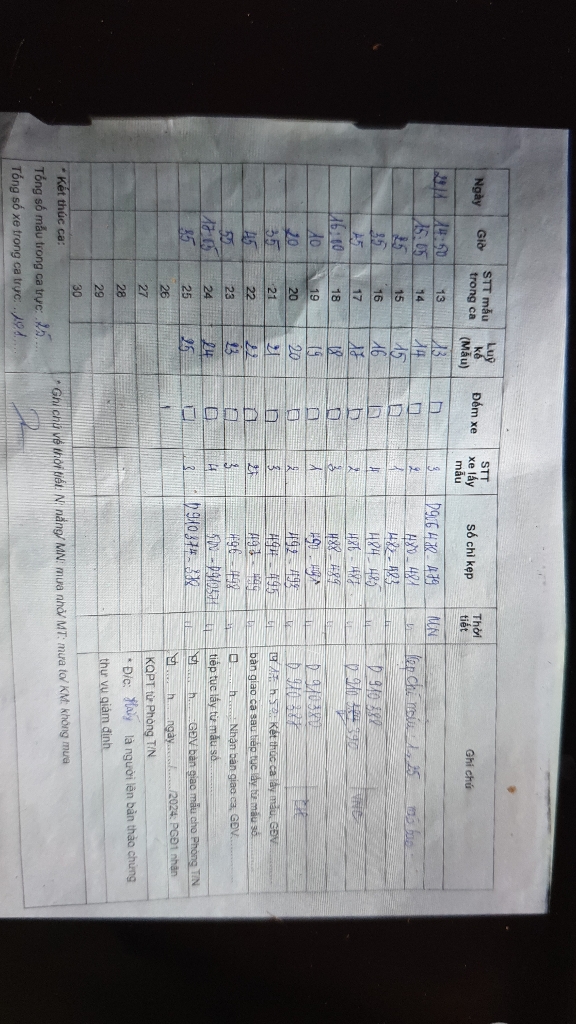 Ngày Giờ STT mẫu trong ca Luỹ kế (Mẫu) Đếm xe STT xe lấy mẫu Số chì kẹp Thời tiết Ghi chú
29/1 14:50 13 13 □ 3 D916 478 - 479 MN
15:05 14 14 □ 2 480 - 481 "
25 15 15 □ 1 482 - 483 "
35 16 16 □ 4 484 - 485 " D 910 388
45 17 17 □ 2 486 - 487 " D 910 390
16:00 18 18 □ 3 488 - 489 "
10 19 19 □ 1 490 - 491 " D 910 380
20 20 20 □ 2 492 - 493 " D 910 377
35 21 21 □ 3 494 - 495 " Kết thúc ca lấy mẫu, GĐV
45 22 22 □ " bàn giao ca sau tiếp tục lấy từ mẫu số
55 23 23 □ 3 496 - 498 " □ ...... h ...... Nhận bàn giao ca, GĐV
17:05 24 24 □ 4 500 - D910371 " tiếp tục lấy từ mẫu số
35 25 25 □ 3 D910 374 - 378 " ...... h ...... GĐV bàn giao mẫu cho Phòng TN
26 ...... h ...... ngày....../....../2024, PGĐ1 nhận
27 KQPT từ Phòng TN
28 * Đ/c: là người lên bản thảo chứng
29 thư vụ giám định
30
* Kết thúc ca: * Ghi chú về thời tiết: N: nắng/ MN: mưa nhỏ/ MT: mưa to/ KM: không mưa
Tổng số mẫu trong ca trực: 25
Tổng số xe trong ca trực: 191